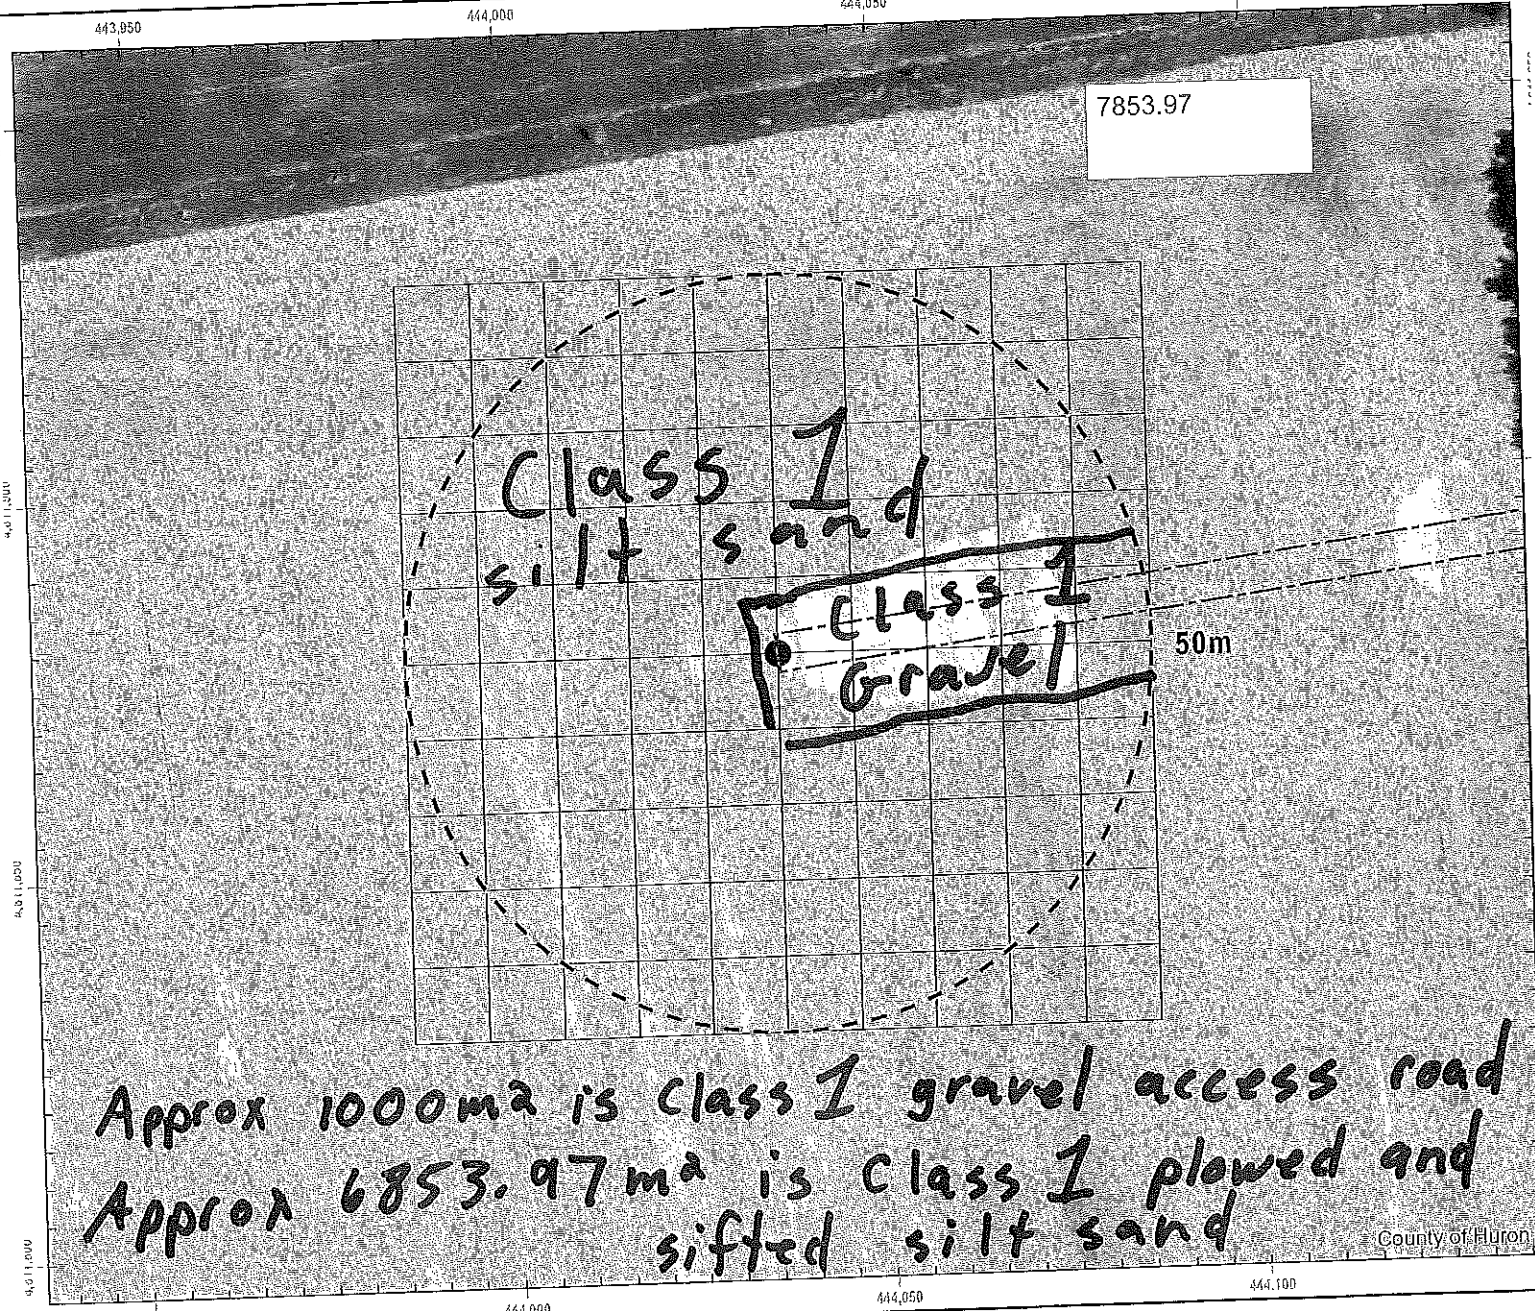 443,950
444,000
444,050
7853.97
Class 1
silt sand
Class 1
Gravel
50m
Approx 1000m² is Class 1 gravel access road
Approx 6853.97m² is Class 1 plowed and
sifted silt sand
County of Huron
444,000
444,050
444,100